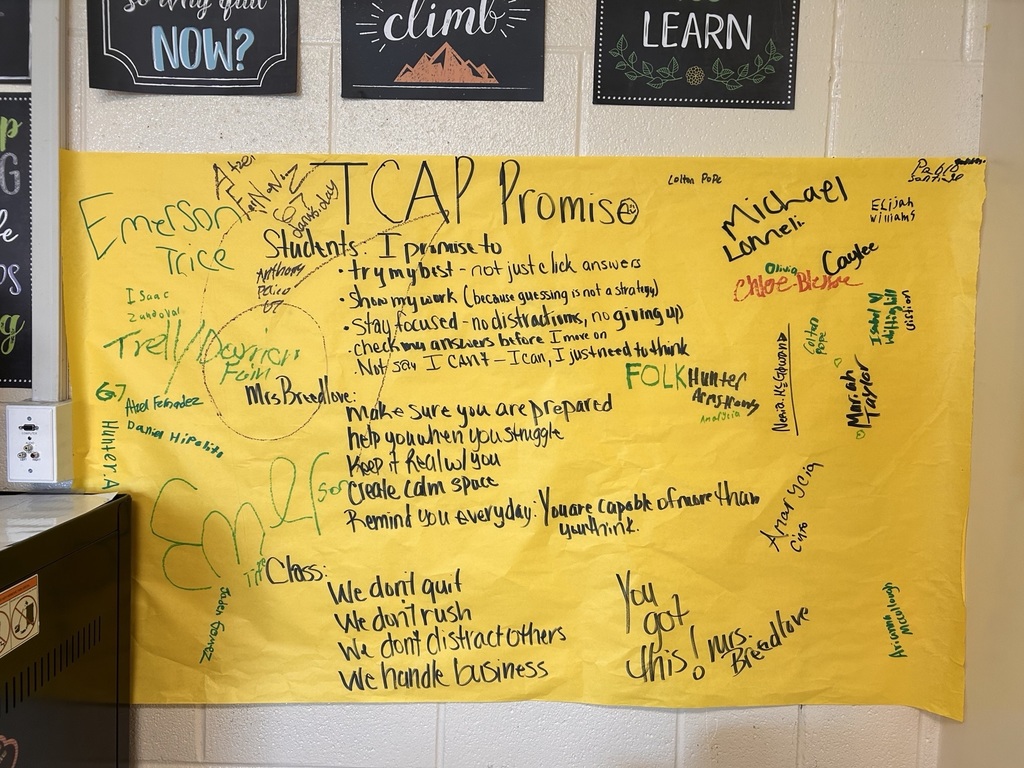 so why quit
NOW?
climb
LEARN
TCAP Promise
Students: I promise to
• try my best - not just click answers
• Show my work (because guessing is not a strategy)
• Stay focused - no distractions, no giving up
• check my answers before I move on
Not say I CAN'T - I can, I just need to think
Mrs Breedlove:
Make sure you are prepared
help you when you struggle
Keep it Real w/ you
Create calm space
Remind you everyday: You are capable of more than
you think.
Class:
We don't quit
We don't rush
We don't distract others
We handle business
You
got
this! Mrs.
Breedlove
Emerson
Trice
Anthony
67
Isaac
Zandoval
Trell/Darrien
Fain
67
Abdel Fernandez
Daniel Hipolito
Hunter.A
Colton Pope
Michael
Lonneli
Pablo
Elijah
Williams
Caylee
Olivia
Colton
Pope
FOLK Hunter
Armstrong
Amarycia
Mariah
Taylor
Amarycia
Arianna
McCullough